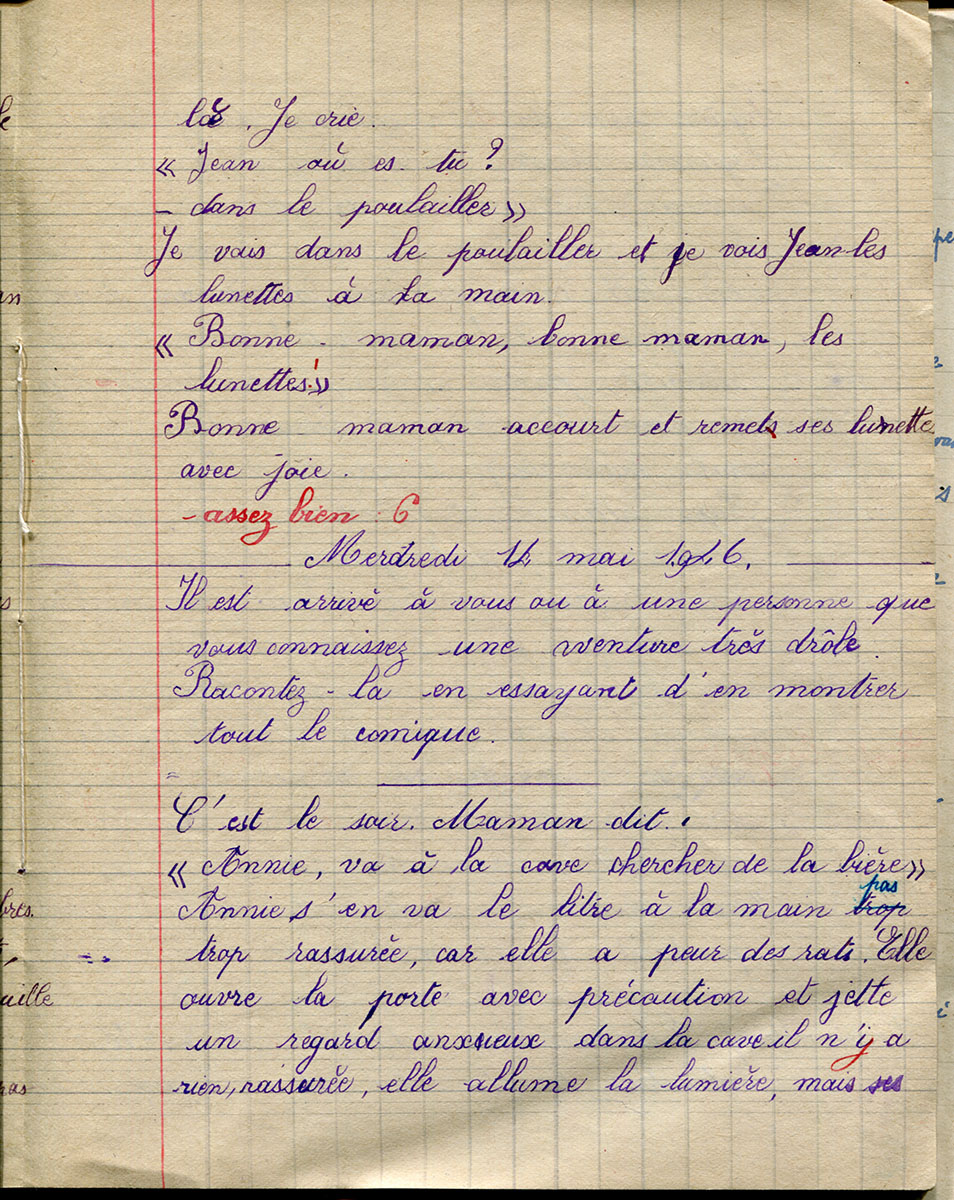 là. Je crie.
« Jean où es-tu ?
- dans le poulailler »
Je vais dans le poulailler et je vois Jean les
lunettes à la main.
« Bonne - maman, bonne maman, les
lunettes! »
Bonne maman accourt et remets ses lunette
avec joie.
- assez bien : 6
Merdredi 14 mai 1946.
Il est arrivé à vous ou à une personne que
vous connaissez une aventure très drôle.
Racontez-la en essayant d'en montrer
tout le comique.
C'est le soir. Maman dit.
« Annie, va à la cave chercher de la bière »
pas
Annie s'en va le litre à la main trop
trop rassurée, car elle a peur des rats. Elle
ouvre la porte avec précaution et jette
un regard anxieux dans la cave il n'y a
rien, rassurée, elle allume la lumière, mais ses